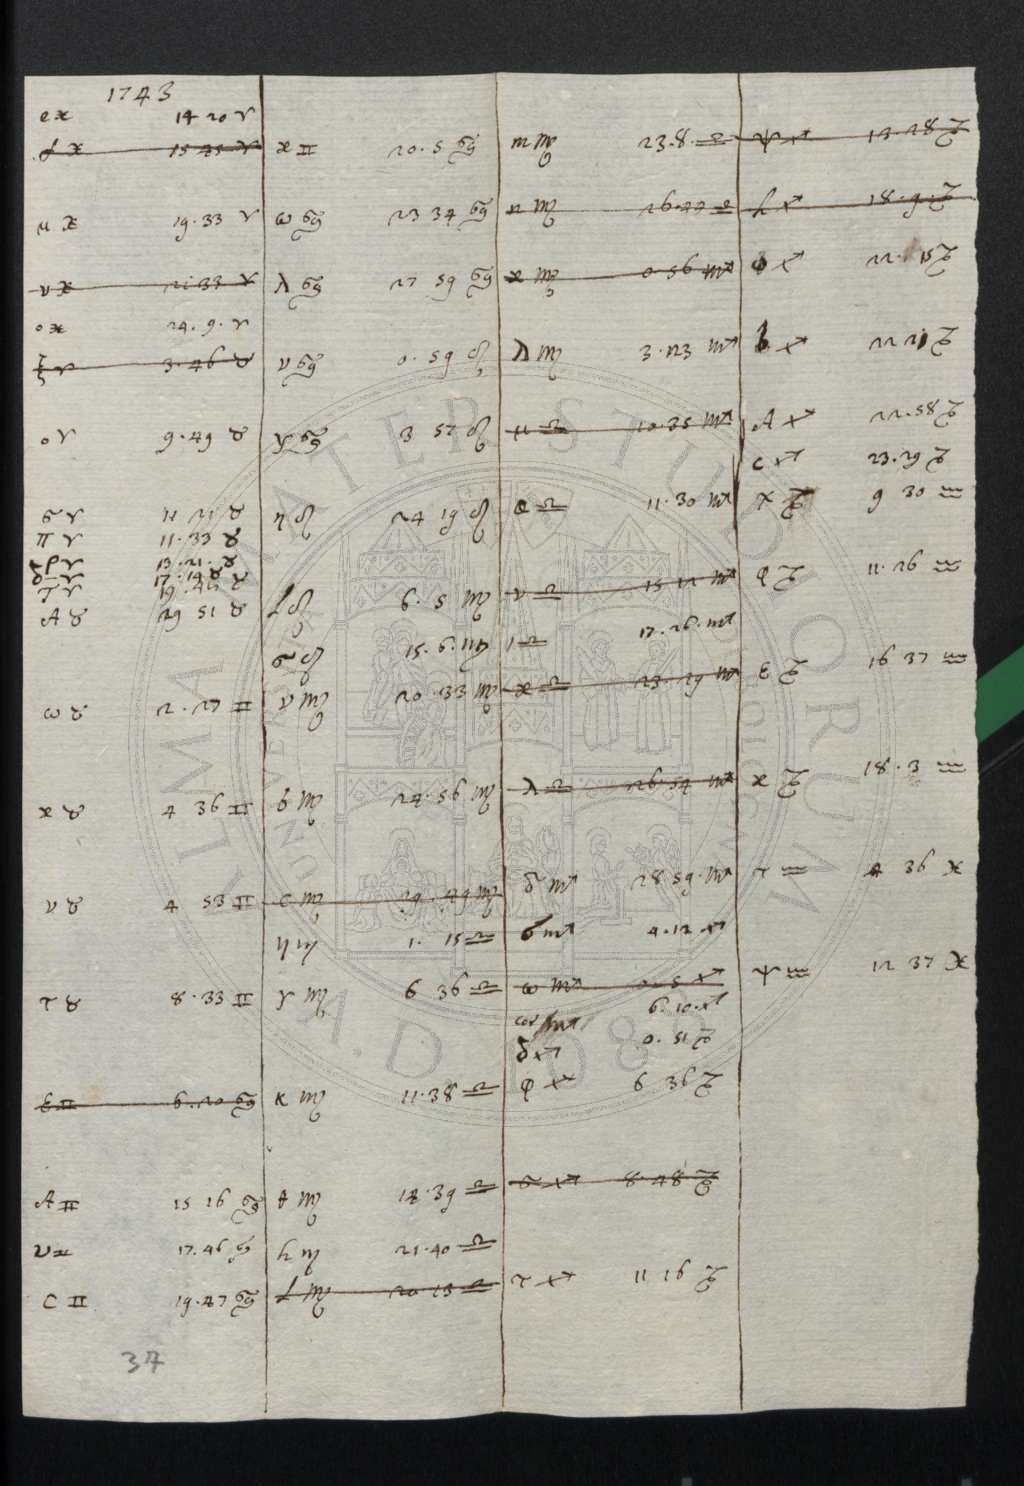 1743
e ♓ 14 20 ♈
f ♓ 15 45 ♈
μ ♓ 19.33 ♈
ν ♓ 21 33 ♈
o ♓ 24.9.♈
ξ ♈ 3.46 ♉
o ♈ 9.49 ♉
σ ♈ 11 21 ♉
π ♈ 11.33 ♉
ρ ♈ 13.21.♉
δ ♈ 17.14 ♉
τ ♈ 19.46 ♉
A ♉ 29 51 ♉
ω ♉ 2.27 ♊
x ♉ 4 36 ♊
ν ♉ 4 53 ♊
τ ♉ 8.33 ♊
ε ♊ 6.20 ♋
A ♊ 15 16 ♋
υ ♊ 17.46 ♋
c ♊ 19.47 ♋
37
x ♊ 20.5 ♋
ω ♋ 23 34 ♋
λ ♋ 27 59 ♋
ν ♋ 0.59 ♌
γ ♋ 3 57 ♌
η ♌ 24 19 ♌
f ♌ 6.5 ♍
σ ♌ 15.6.♍
ν ♍ 20 33 ♍
b ♍ 24.56 ♍
c ♍ 29.49 ♍
η ♍ 1.15 ♎
γ ♍ 6 36 ♎
κ ♍ 11.38 ♎
θ ♍ 14.39 ♎
h ♍ 21.40 ♎
f ♍ 20 13 ♎
m ♍ 23.8.♎
n ♍ 26.44 ♎
x ♍ 0.56 ♏
λ ♍ 3.23 ♏
μ ♎ 10.35 ♏
♎ 11.30 ♏
ν ♎ 15 12 ♏
ι ♎ 17.26.♏
x ♎ 23.29 ♏
λ ♎ 26 54 ♏
δ ♏ 28 59.♏
σ ♏ 4.12 ♐
ω ♏ 0.5 ♐
cor ♏ 6.10.♐
δ ♐ 0.51 ♑
φ ♐ 6 36 ♑
σ ♐ 8.48 ♑
τ ♐ 11 16 ♑
ψ ♐ 13 28 ♑
h ♐ 18.9.♑
♐ 22.15 ♑
b ♐ 22 21 ♑
A ♐ 22.58 ♑
c ♐ 23.29 ♑
♑ 9 30 ♒
♑ 11.26 ♒
ε ♑ 16 37 ♒
x ♑ 18.3 ♒
τ ♒ 4 36 ♓
ψ ♒ 12 37 ♓
ALMA MATER STUDIORUM
A.D. 1088